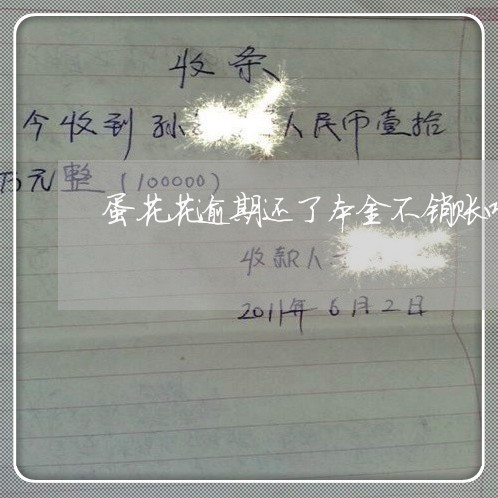 收条
今收到孙 人民币壹拾
万元整（100000）
蛋花花逾期还了本金不销账
收款人
2011年6月2日